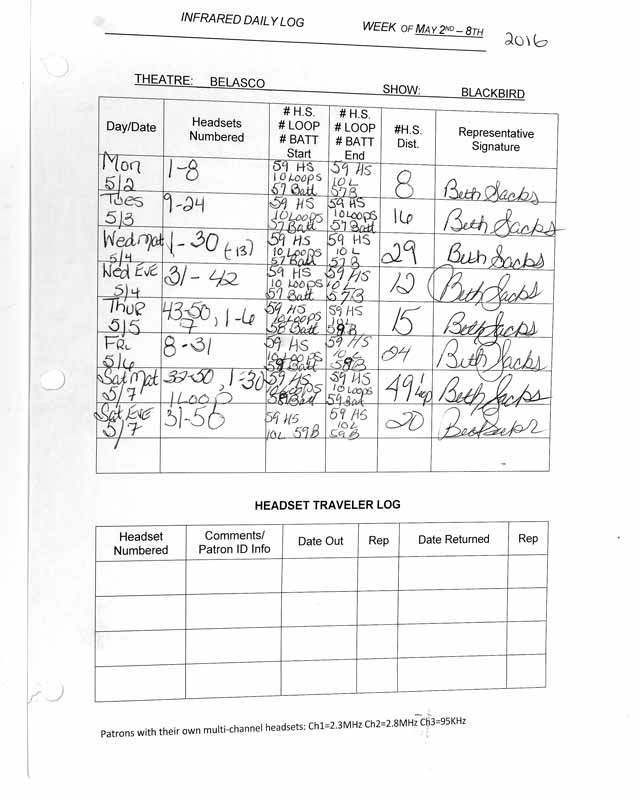 INFRARED DAILY LOG WEEK OF MAY 2ND – 8TH 2016
THEATRE: BELASCO SHOW: BLACKBIRD
Day/Date Headsets Numbered # H.S. # LOOP # BATT Start # H.S. # LOOP # BATT End #H.S. Dist. Representative Signature
Mon 5/2 1-8 59 HS 10 Loops 57 Batt 59 HS 10 L 57 B 8 Beth Sacks
Tues 5/3 9-24 59 HS 10 Loops 57 Batt 59 HS 10 Loops 57 Batt 16 Beth Sacks
Wed Mat 5/4 1-30 (-13) 59 HS 10 Loops 57 Batt 59 HS 10 L 57 B 29 Beth Sacks
Wed Eve 5/4 31-42 59 HS 10 Loops 57 Batt 59 HS 10 L 57 B 12 Beth Sacks
Thur 5/5 43-50, 1-6 7 59 HS 10 Loops 58 Batt 59 HS 10 L 15 Beth Sacks
Fri 5/6 8-31 59 HS 10 Loops Batt 59 HS 10 L 24 Beth Sacks
Sat Mat 5/7 32-50, 1-30 1 Loop 59 HS 10 Loops Batt 59 HS 10 Loops 59 Batt 49 1 Loop Beth Sacks
Sat Eve 5/7 31-50 59 HS 10L 59B 59 HS 10L 59B 20
HEADSET TRAVELER LOG
Headset Numbered Comments/ Patron ID Info Date Out Rep Date Returned Rep
Patrons with their own multi-channel headsets: Ch1=2.3MHz Ch2=2.8MHz Ch3=95KHz